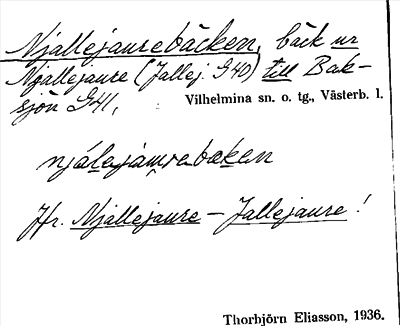 Njallejaurebäcken, bäck ur
Njallejaure (Jallej. G40) till Bak-
sjön G41,
Vilhelmina sn. o. tg., Västerb. l.
Jfr. Njallejaure – Jallejaure!
Thorbjörn Eliasson, 1936.